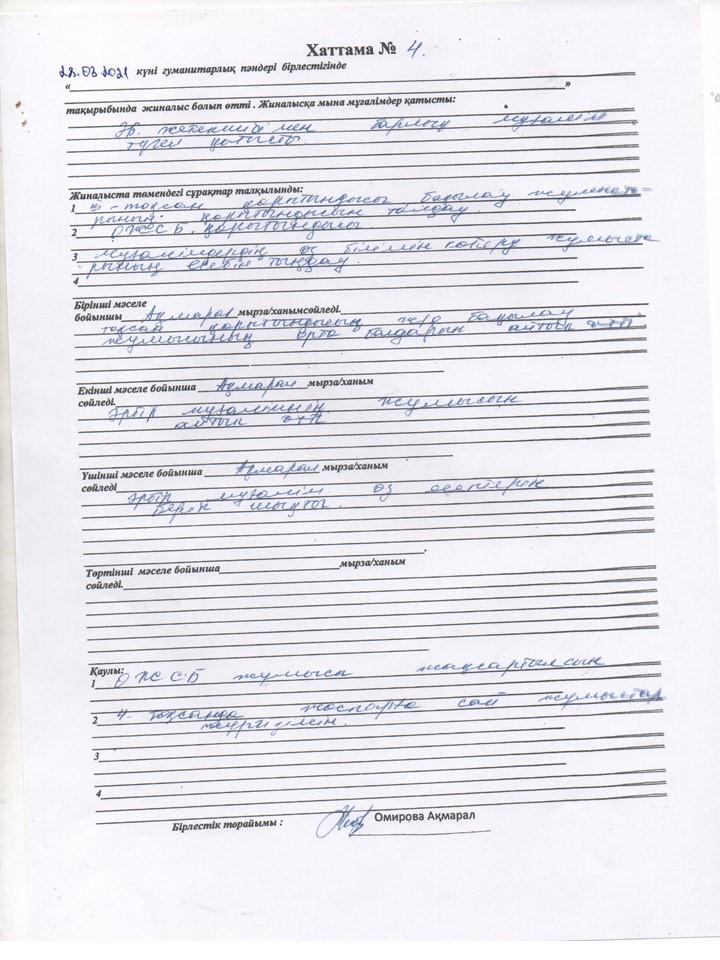 Хаттама № 4.
28.03.2021 күні гуманитарлық пәндері бірлестігінде
« »
тақырыбында жиналыс болып өтті . Жиналысқа мына мұғалімдер қатысты:
Әб. жетекшісі мен барлық мұғалім
түгел қатысты
Жиналыста төмендегі сұрақтар талқыланды:
1 ІІІ - тоқсан қорытындысы бақылау
рының қорытындысын талдау.
2 ОЖСБ. қорытындылы.
3 Мұғалімдердің өз білімін көтеру жұмыста
рының есебін тыңдау.
4
Бірінші мәселе
бойыншы Ақмарал мырза/ханымсөйледі.
тоқсан қорытындысың және бақылау
жұмысының орта балдарын айтып өтті
Екінші мәселе бойынша Ақмарал мырза/ханым
сөйледі. Әрбір мұғалімнің жұмысын
айтып өтті
Үшінші мәселе бойынша Ақмарал мырза/ханым
сөйледі Әрбір мұғалім өз есептерін
беріп шықты.
Төртінші мәселе бойынша мырза/ханым
сөйледі.
Қаулы:
1 ОЖСБ жұмысы жақсартылсын
2 4- тоқсанда жоспарға сай жұмыстар
жүргізілсін.
3
4
Бірлестік төрайымы : Омирова Ақмарал